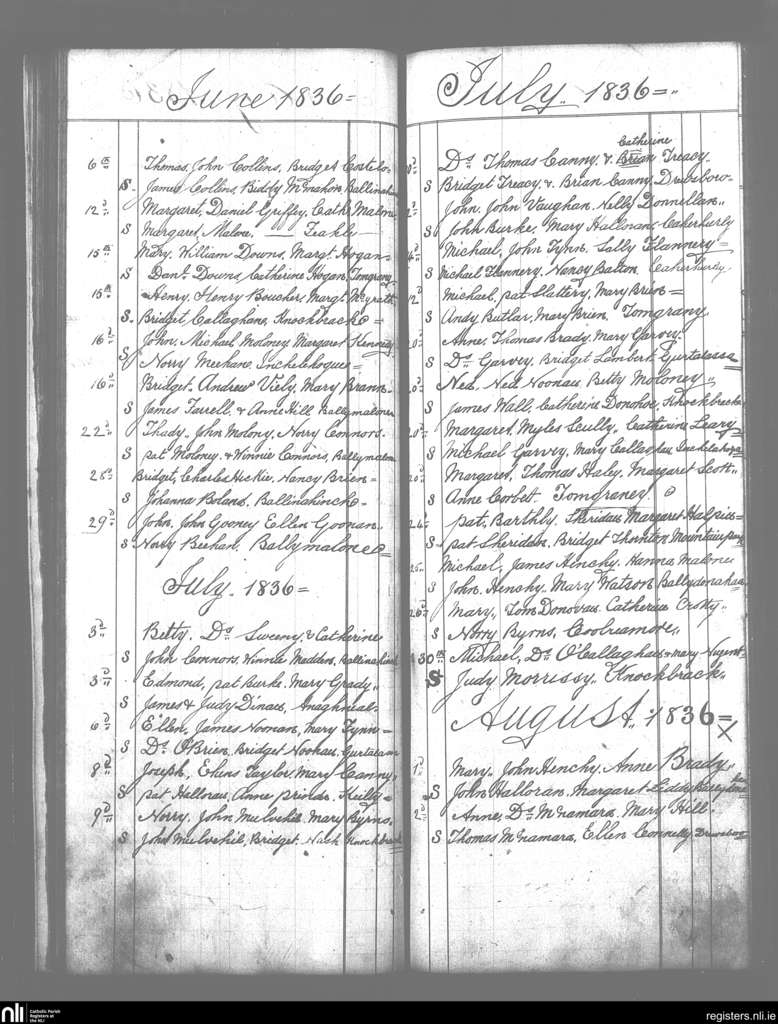 June 1836=
6th Thomas, John Collins, Bridget Costelo
S. James Collins, Biddy McMahon, Ballinahin
12th Margaret, Daniel Griffey, Cath Malone
S Margaret Malone, — Feakle
15th Mary, William Downs, Margt. Hogan=
S Danl. Downs, Catherine Hogan, Tomgrany
15th Henry, Henry Boucher, Margt McGrath
S. Bridget Callaghane, Knockbrack=
16th John, Michael Moloney, Margaret Kennedy
S Norry Meehane,
16th Bridget, Andrew Viely, Mary Brann
S James Farrell, & Anne Hill, Ballymalone
22d Thady, John Molony, Norry Connors.
S pat Moloney & Winnie Connors, Ballymalone
28th Bridget, Charles Hickie, Nancy Brien=
S Johanna Boland, Ballinahinch=
29th John, John Gooney Ellen Goonan
S Norry Beehan, Ballymalone=
July. 1836=
3d Betty, Ds Sweeny, & Catherine
S John Connors, Winnie Madden, Ballinahinch
3d Edmond, pat Burke, Mary Grady,,
S James & Judy Dinan,
6th Ellen, James Noonan, Mary Fynn=
S Ds OBrien, Bridget Noonan,
8th Joseph, Taylor, Mary Canny,
S pat Halloran, Anne
9th Norry, John Mulvehil, Mary Byrns,
S John Mulvehil, Bridget Nash Knockbrack
July. 1836=,,
Catherine
Ds Thomas Canny, & Brian Treacy.
S Bridget Treacy, & Brian Canny,
John, John Vaughan, Nelly Donnellan,,
S John Burke, Mary Halloran, Caherhurly
Michael, John Fynn, Sally Flannery=
S Michael Flannery, Nancy Caherhurly
Michael, pat Slattery, Mary Brien=
S Andy Butlar, Mary Brien, Tomgrany
Anne, Thomas Brady, Mary Garvey
S Ds Garvey, Bridget Lambert,
Ned, Ned Noonan, Betty Moloney,,
S James Wall, Catherine Donohoe, Knockbrack
Margaret, Myles Scully, Catherine Leary
S Michael Garvey, Mary Callaghan
Margaret, Thomas Haley, Margaret Scott,,
S Anne Corbet, Tomgraney
24th pat, Barthly. Sheridan Margaret Halpin=
S pat Sheridan, Bridget Thornton
25 Michael, James Henchy, Hanna Malone
S John Henchy, Mary Watson
26th Mary, Tom Donovan Catherine Crotty,,
S Norry Byrns, Coolreamore,,
30th Michael, Ds O'Callaghan & Mary Nugent
S Judy Morrissy, Knockbrack.
August,. 1836=
1st Mary, John Henchy, Anne Brady,
S John Halloran, Margaret Liddy
2d Anne, Ds McNamara, Mary Hill.
S Thomas McNamara, Ellen Connelly
nli
Catholic Parish
Registers at
the NLI
registers.nli.ie